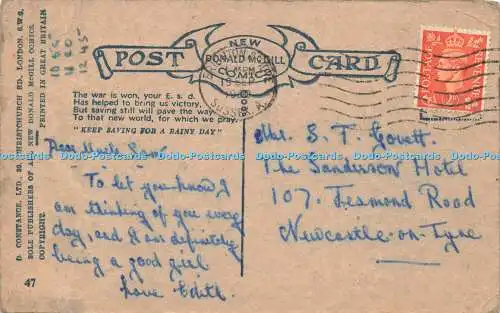 NEW
DONALD McGILL
COMICS
POST CARD
The war is won, your £. s. d.
Has helped to bring us victory,
But saving still will pave the way,
To that new world, for which we pray.
"KEEP SAVING FOR A RAINY DAY"
D. CONSTANCE, LTD., CHRISTCHURCH RD., LONDON, S.W.2.
SOLE PUBLISHERS OF THE NEW DONALD McGILL COMICS.
COPYRIGHT. PRINTED IN GREAT BRITAIN
11 20
12 45
SUSSEX
POSTAGE REVENUE
Dear Uncle Sam
To let you know I
am thinking of you every
day, and I am definitely
being a good girl
love Edith
Mrs. S. T. Govett.
The Sanderson Hotel
107, Jesmond Road
Newcastle-on-Tyne
47
Dodo-Postcards Dodo-Postcards Dodo-Postcards Dodo-Postcards